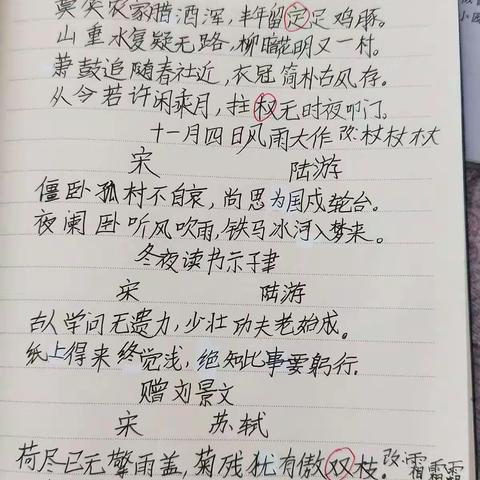 莫笑农家腊酒浑，丰年留定足鸡豚。
山重水复疑无路，柳暗花明又一村。
萧鼓追随春社近，衣冠简朴古风存。
从今若许闲乘月，拄权无时夜叩门。
十一月四日风雨大作 改:杖杖杖
宋 陆游
僵卧孤村不自哀，尚思为国戍轮台。
夜阑卧听风吹雨，铁马冰河入梦来。
冬夜读书示子聿
宋 陆游
古人学问无遗力，少壮功夫老始成。
纸上得来终觉浅，绝知此事要躬行。
赠刘景文
宋 苏轼
荷尽已无擎雨盖，菊残犹有傲双枝。改:霜霜霜